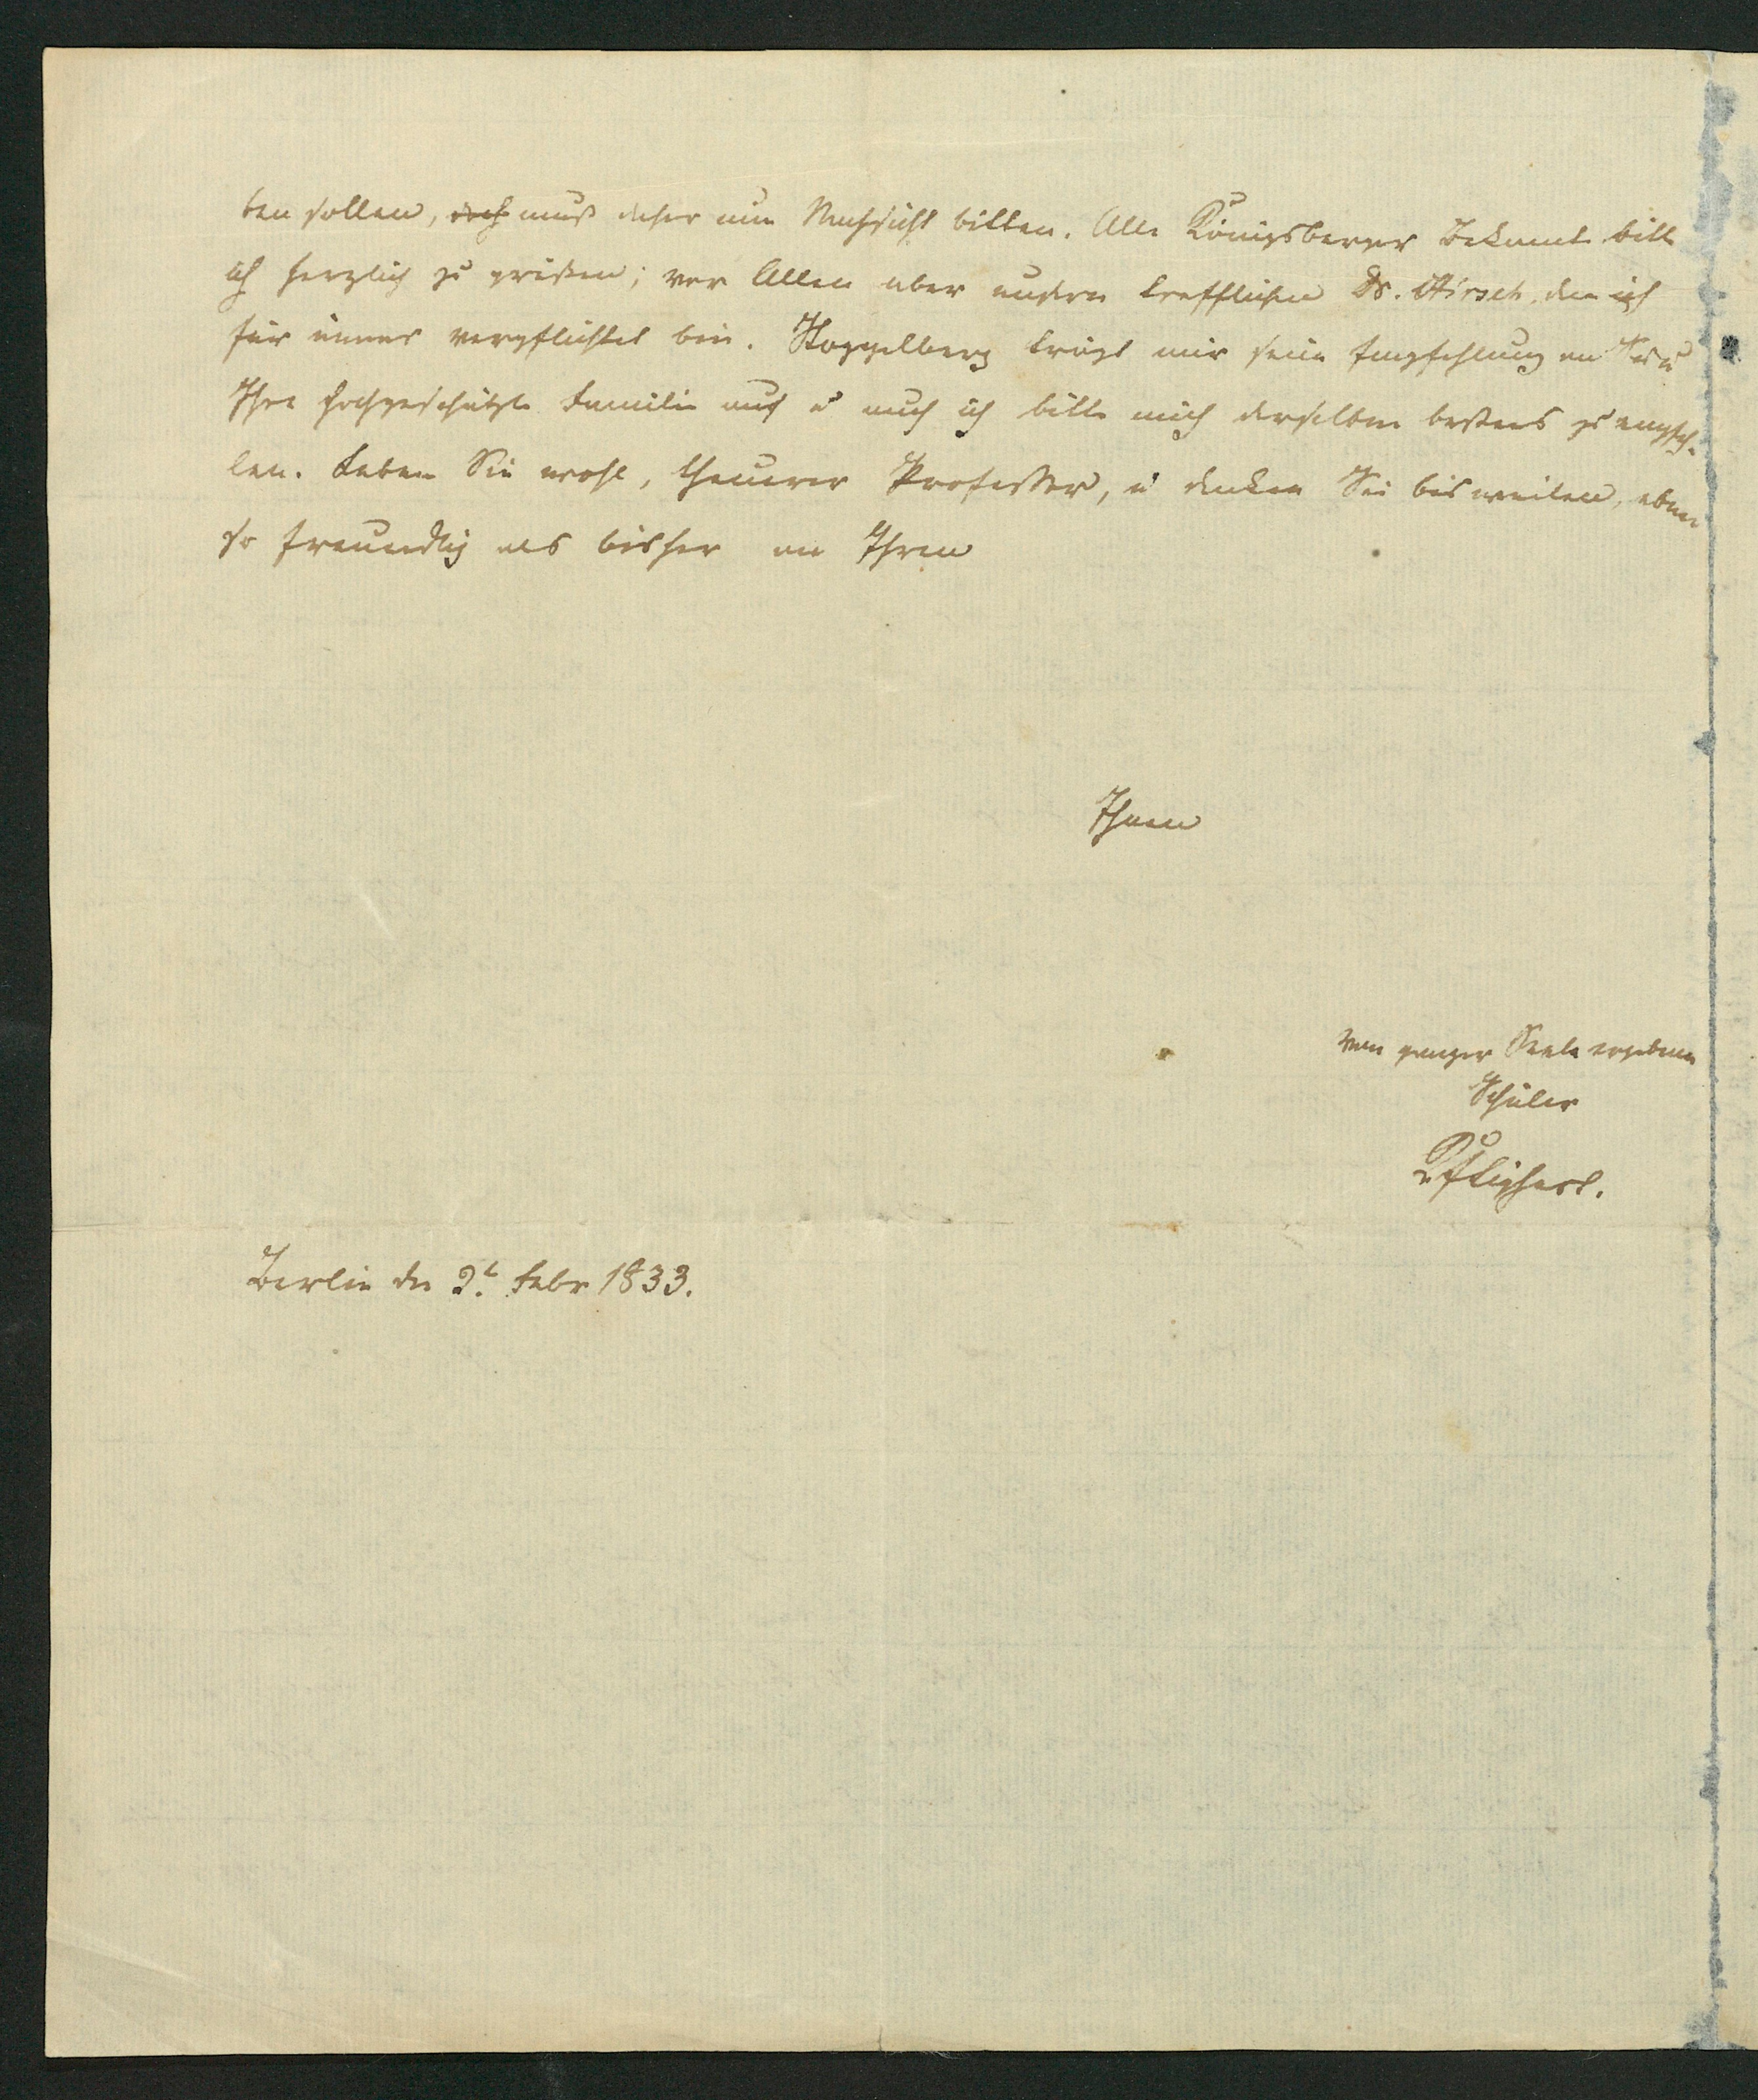 ben sollen, doch muß daher um Nachsicht bitten. Alle Königsberger Bekannte bitte
ich herzlich zu grüßen; vor Allen aber unsern trefflichen Dr. Hirsch, dem ich
für immer verpflichtet bin. Koppelberg trägt mir seine Empfehlung an Sie u
Ihre hochgeschätzte Familie auf u auch ich bitte mich derselben bestens zu empfeh-
len. Leben Sie wohl, theurer Professor, u denken Sie bisweilen, eben
so freundlich als bisher an Ihren
Ihnen
von ganzer Seele ergebenen
Schüler
Berlin den 2t Febr 1833.